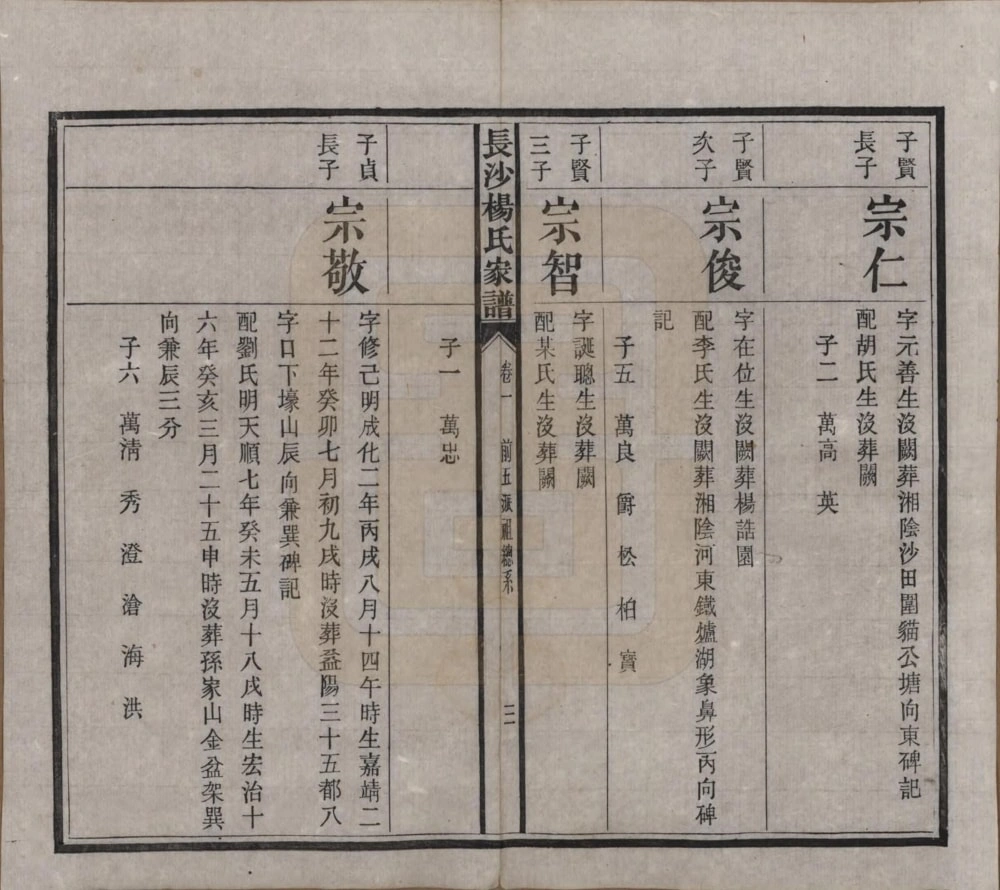 子賢
長子
宗仁
字元善生沒闕葬湘陰沙田圍貓公塘向東碑記
配胡氏生沒葬闕
子二 萬高 英
子賢
次子
宗俊
字在位生沒闕葬楊誥園
配李氏生沒闕葬湘陰河東鐵爐湖象鼻形丙向碑
記
子五 萬良 爵 松 柏 實
子賢
三子
宗智
字誕聰生沒葬闕
配某氏生沒葬闕
長沙楊氏家譜
卷一 前五派祖總系 三
子一 萬忠
子貞
長子
宗敬
字修己明成化二年丙戌八月十四午時生嘉靖二
十二年癸卯七月初九戌時沒葬益陽三十五都八
字口下壕山辰向兼巽碑記
配劉氏明天順七年癸未五月十八戌時生宏治十
六年癸亥三月二十五申時沒葬孫家山金盆架巽
向兼辰三分
子六 萬淸 秀 澄 滄 海 洪